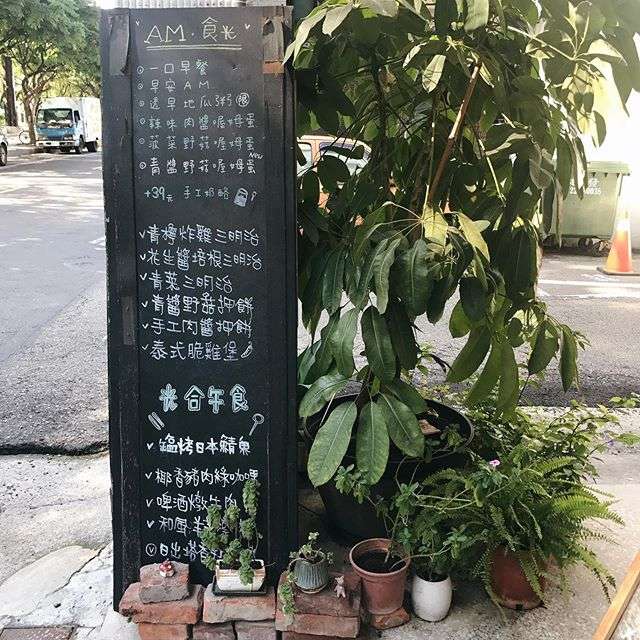 AM·食光
一口早餐
早安AM
透早地瓜粥 限
辣味肉醬喔姆蛋
菠菜野菇喔姆蛋
青醬野菇喔姆蛋 NEW
+39元 手工奶酪
青檸炸雞三明治
花生醬培根三明治
青菜三明治
青醬野菇押餅
手工肉醬押餅
泰式脆雞堡
光合午食
鹽烤日本鯖魚
椰香豬肉綠咖哩
啤酒燉牛肉
和風
日出塔香